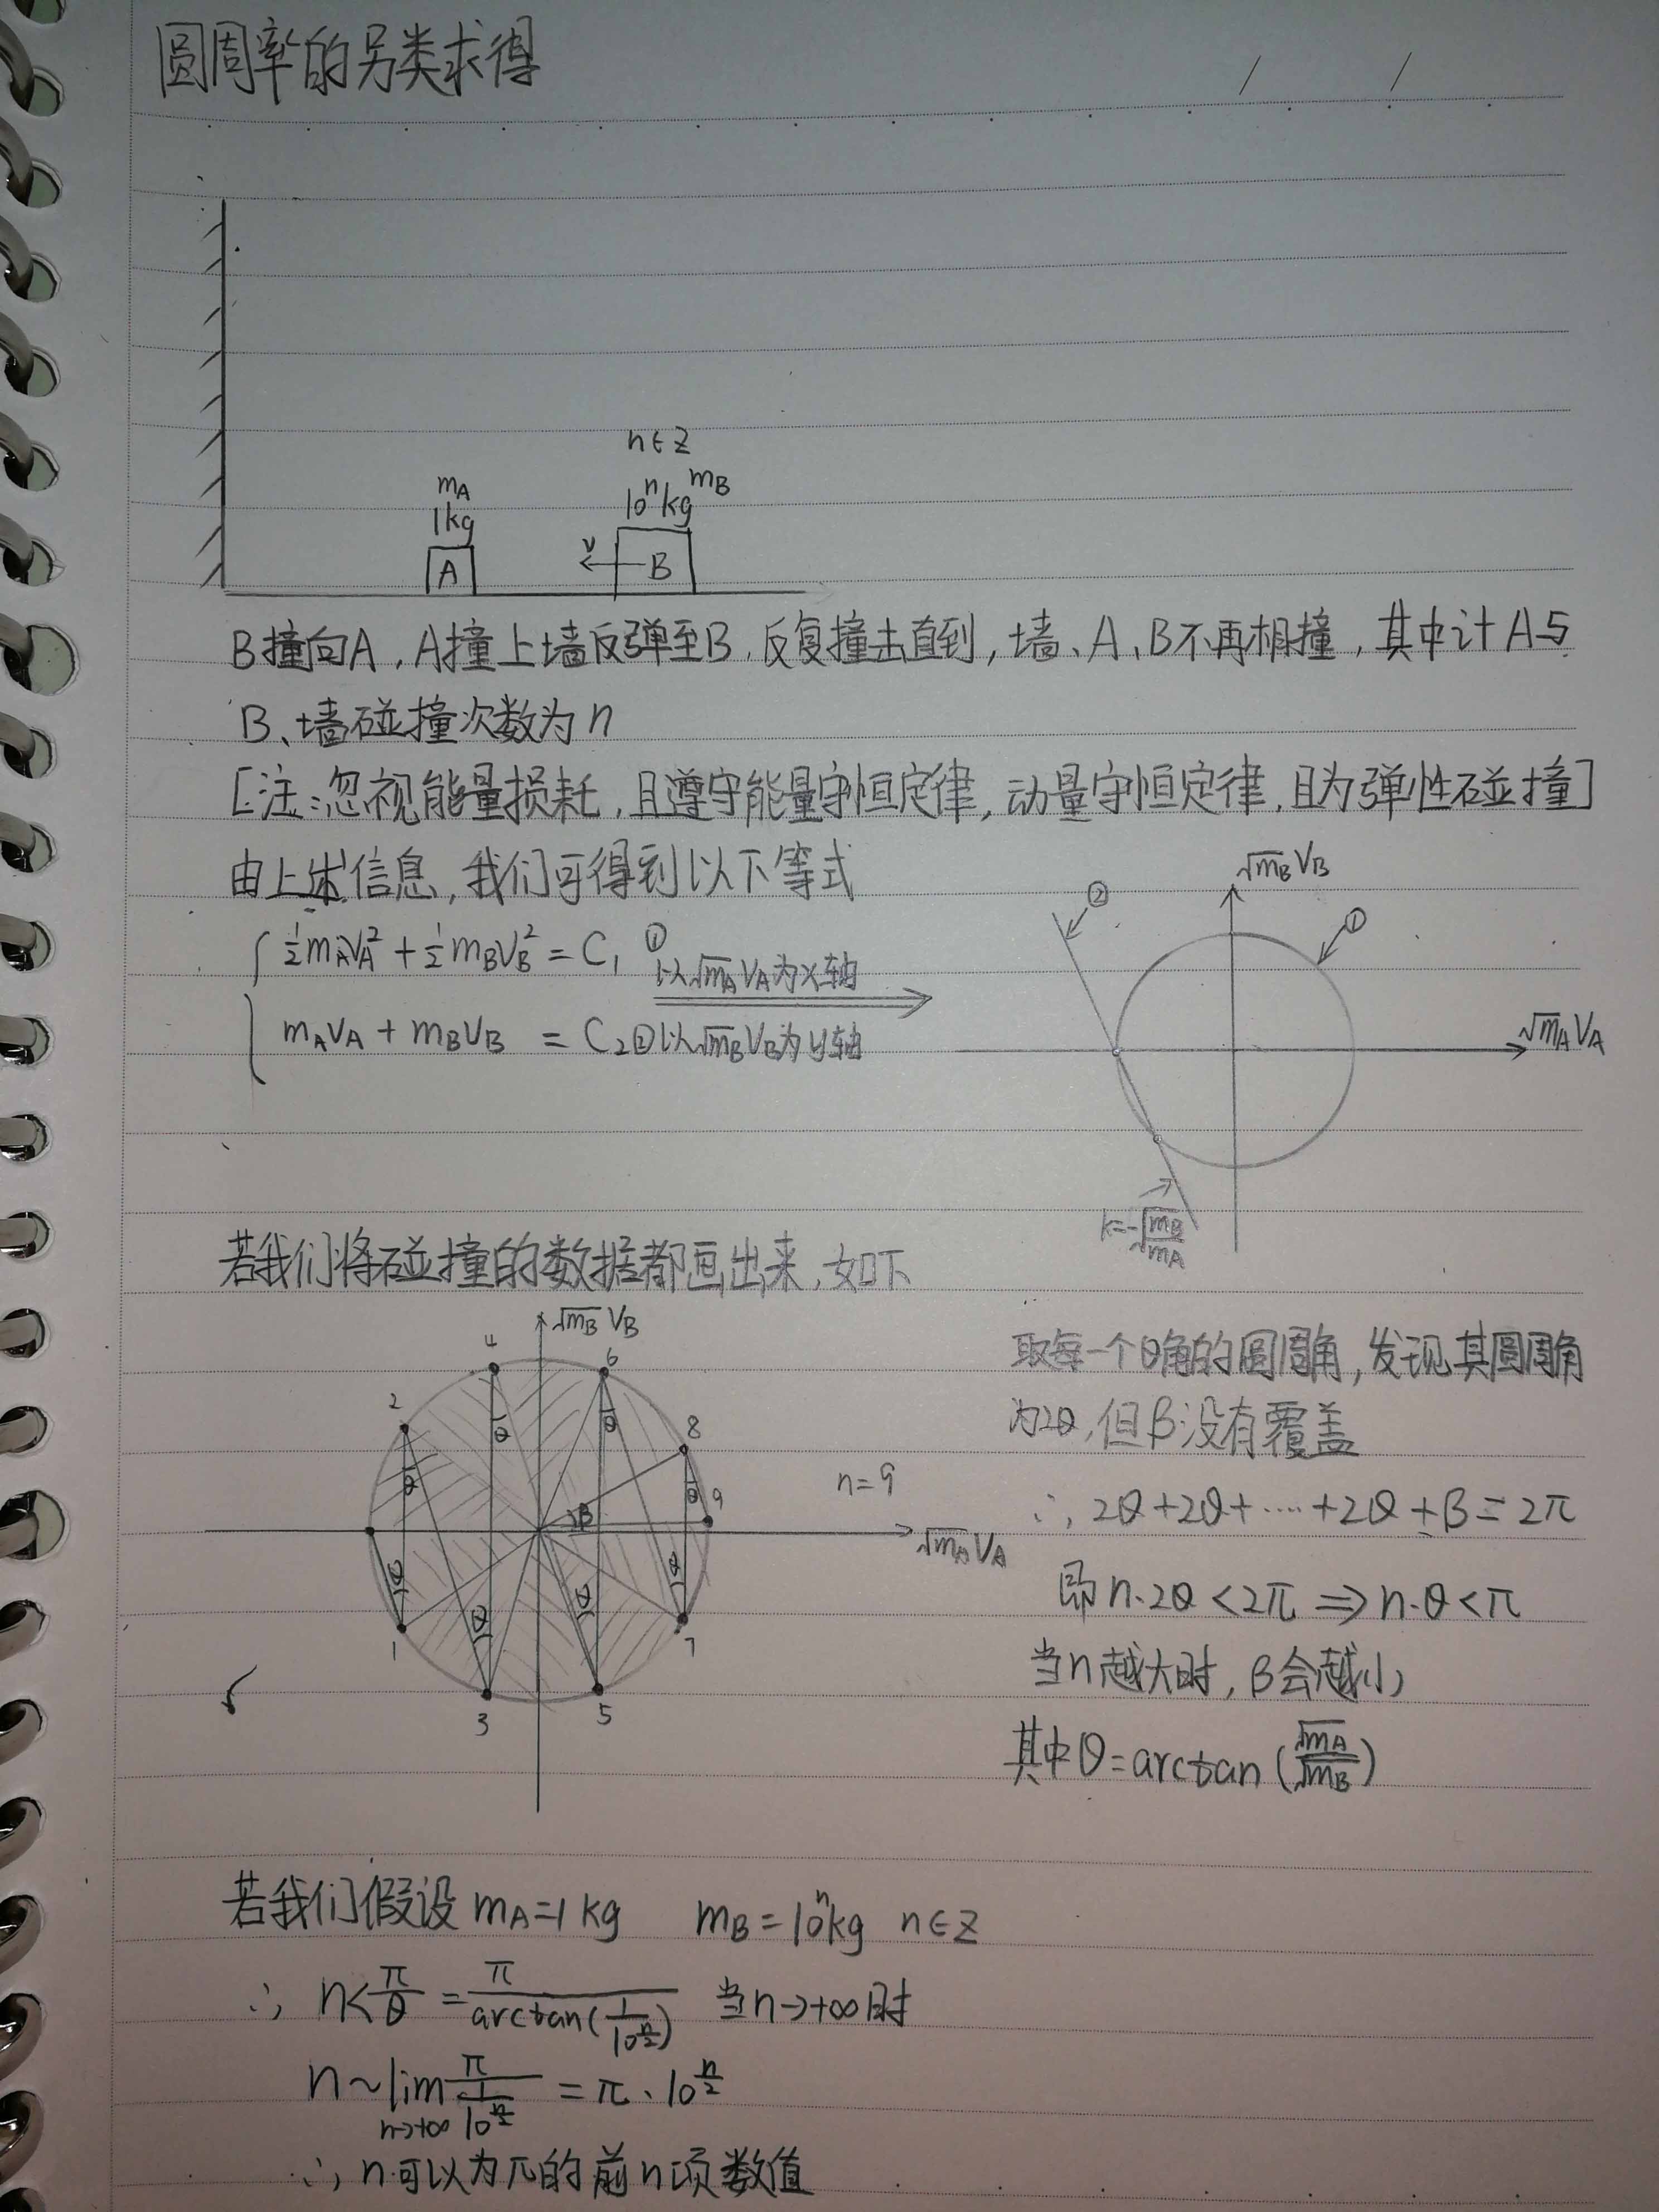 圆周率的另类求得
n∈Z
mA
10ⁿkg mB
1kg
v
A
B
B撞向A，A撞上墙反弹至B，反复撞击直到，墙、A、B不再相撞，其中计A与
B、墙碰撞次数为n
[注：忽视能量损耗，且遵守能量守恒定律，动量守恒定律，且为弹性碰撞]
由上述信息，我们可得到以下等式
½mAVA²+½mBVB²=C₁ ①
以√mA VA为x轴
mAVA+mBVB=C₂②以√mB VB为y轴
√mB VB
②
①
√mA VA
k=-√(mB/mA)
若我们将碰撞的数据都画出来，如下
√mB VB
4
6
2
8
θ
θ
θ
θ
9
β
√mA VA
n=9
θ
θ
θ
θ
1
7
3
5
取每一个θ角的圆周角，发现其圆周角
为2θ，但β没有覆盖
∴2θ+2θ+……+2θ+β=2π
即n·2θ<2π⇒n·θ<π
当n越大时，β会越小
其中θ=arctan(√mA/√mB)
若我们假设mA=1kg mB=10ⁿkg n∈Z
∴n<π/θ=π/arctan(1/10^(n/2)) 当n→+∞时
n～lim n→+∞ π/(1/10^(n/2))=π·10^(n/2)
∴n可以为π的前n项数值